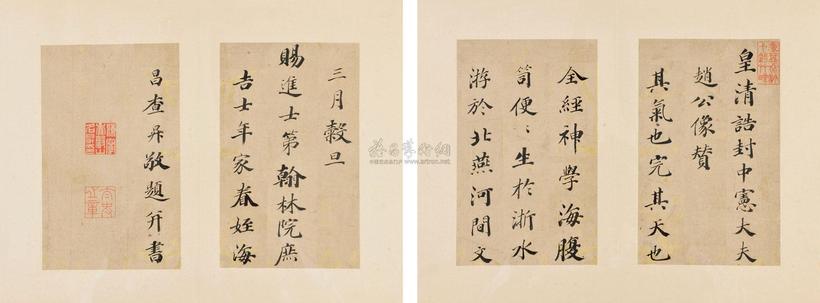 皇清誥封中憲大夫
趙公像贊
其氣也完其天也
全經神學海腹
笥便〻生於浙水
游於北燕河間文
三月穀旦
賜進士第翰林院庶
吉士年家眷姪海
昌查昇敬題并書